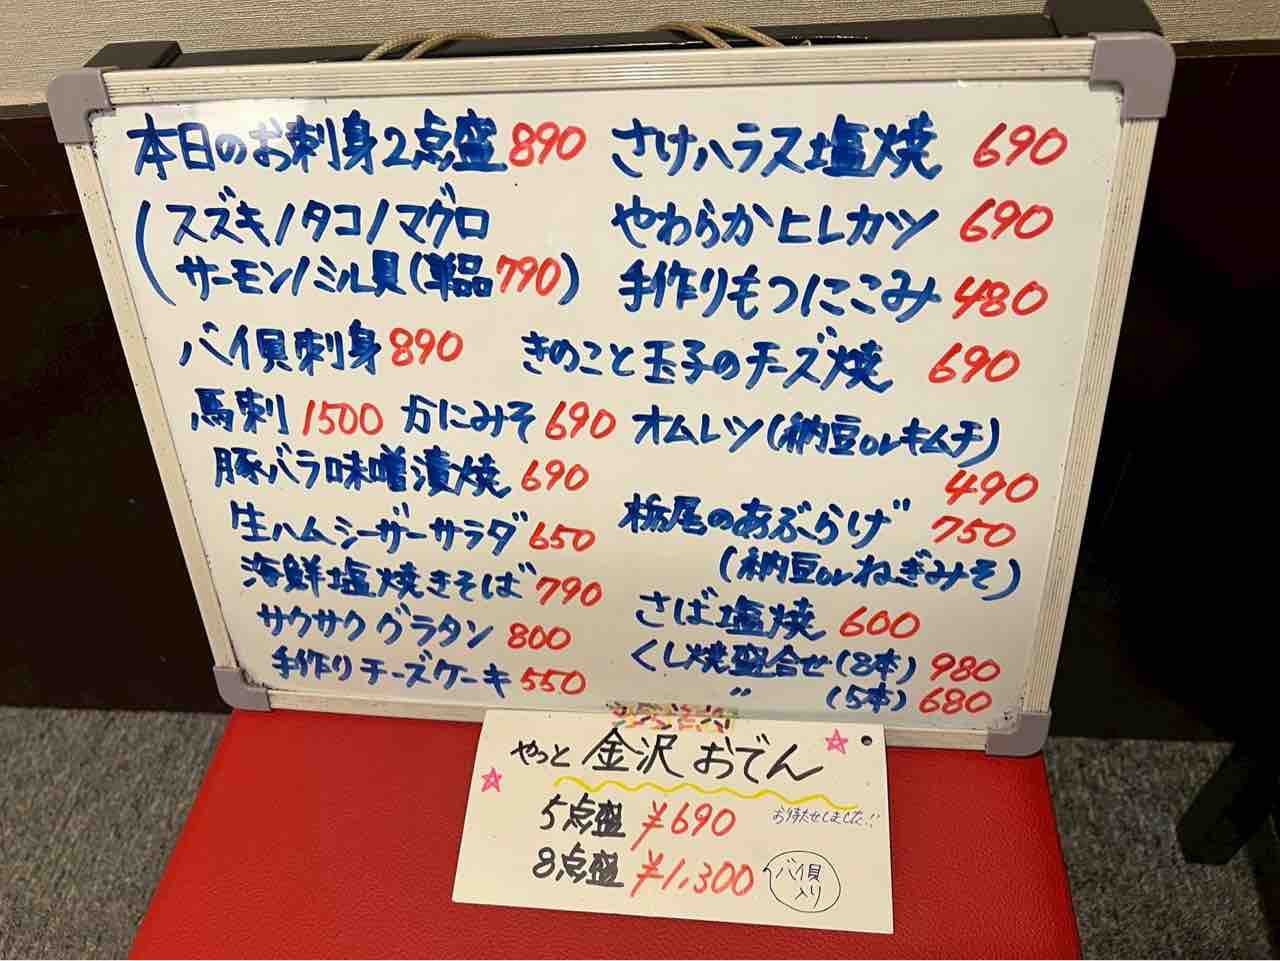 本日のお刺身2点盛 890
(スズキ/タコ/マグロ
サーモン/ミル貝(単品790)
バイ貝刺身 890
馬刺 1500 かにみそ 690
豚バラ味噌漬焼 690
生ハムシーザーサラダ 650
海鮮塩焼きそば 790
サクサクグラタン 800
手作りチーズケーキ 550
さけハラス塩焼 690
やわらかヒレカツ 690
手作りもつにこみ 480
きのこと玉子のチーズ焼 690
オムレツ(納豆orキムチ)
490
栃尾のあぶらげ 750
(納豆orねぎみそ)
さば塩焼 600
くし焼盛合せ(8本) 980
〃 (5本) 680
やっと 金沢おでん
お待たせしました!!
5点盛 ¥690
8点盛 ¥1,300
バイ貝
入り